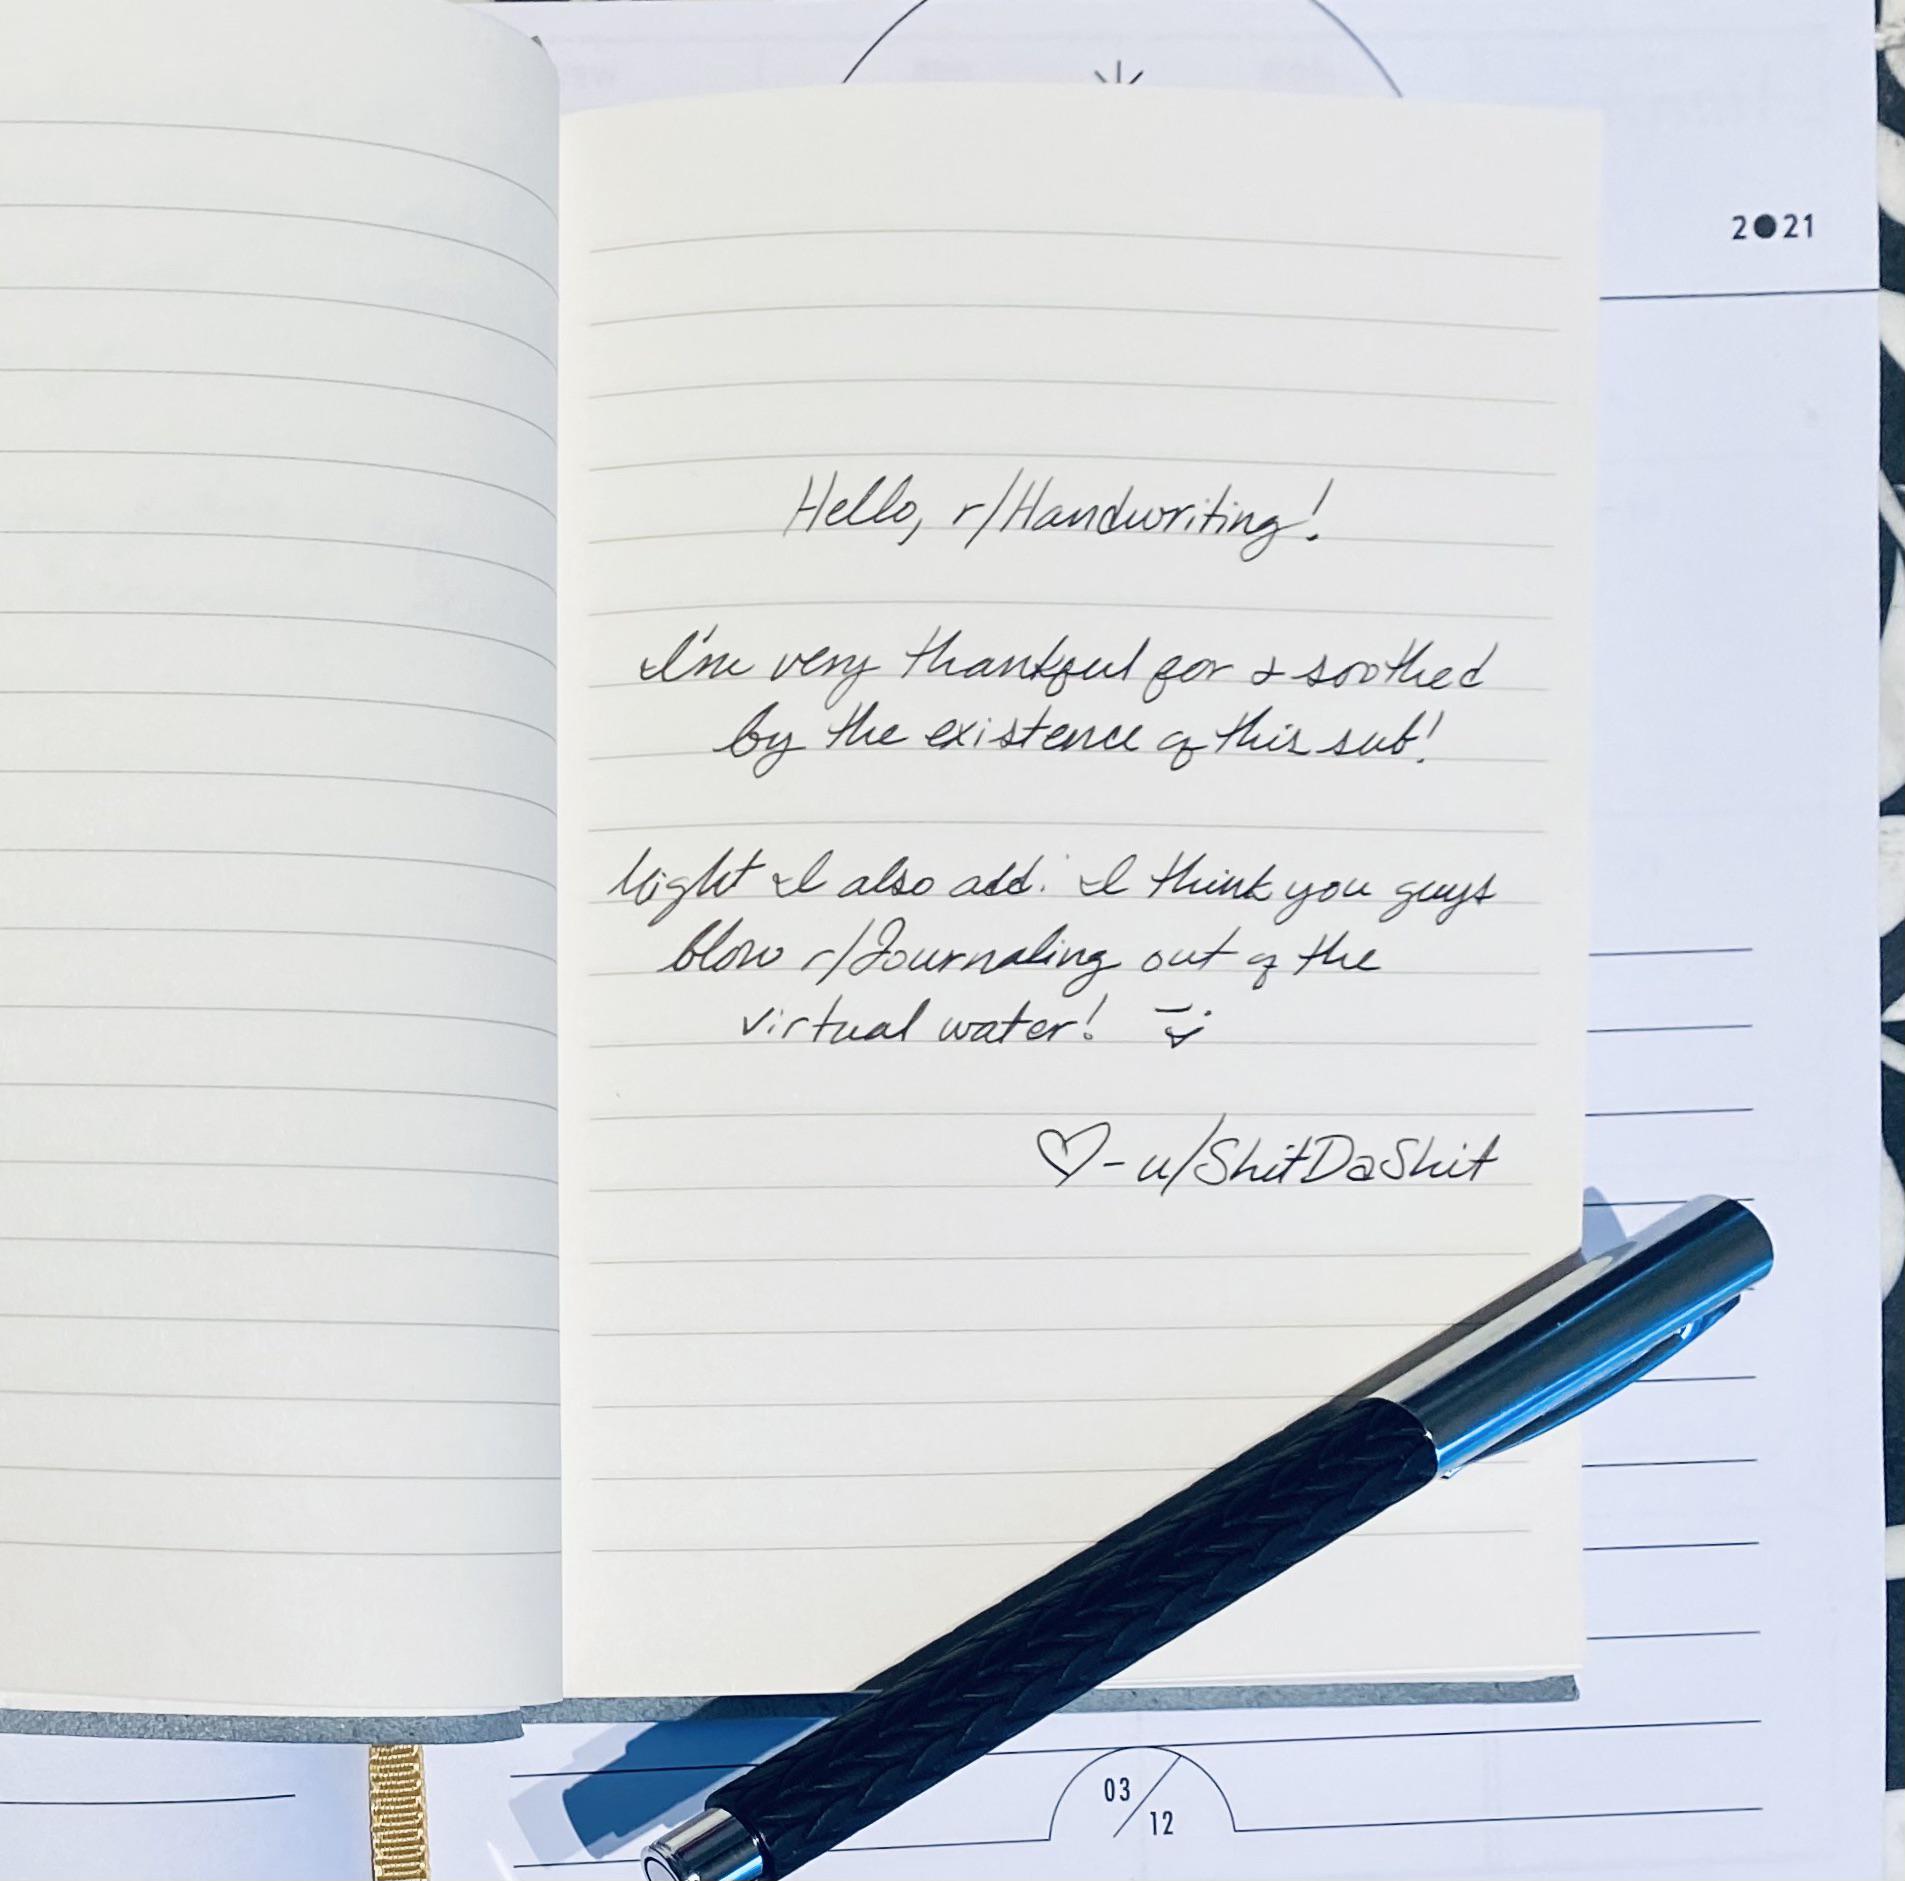 2021
Hello, r/Handwriting!
I'm very thankful for & soothed
by the existence of this sub!
Might I also add: I think you guys
blow r/Journaling out of the
virtual water! 
♡-u/ShitDaShit
03/12